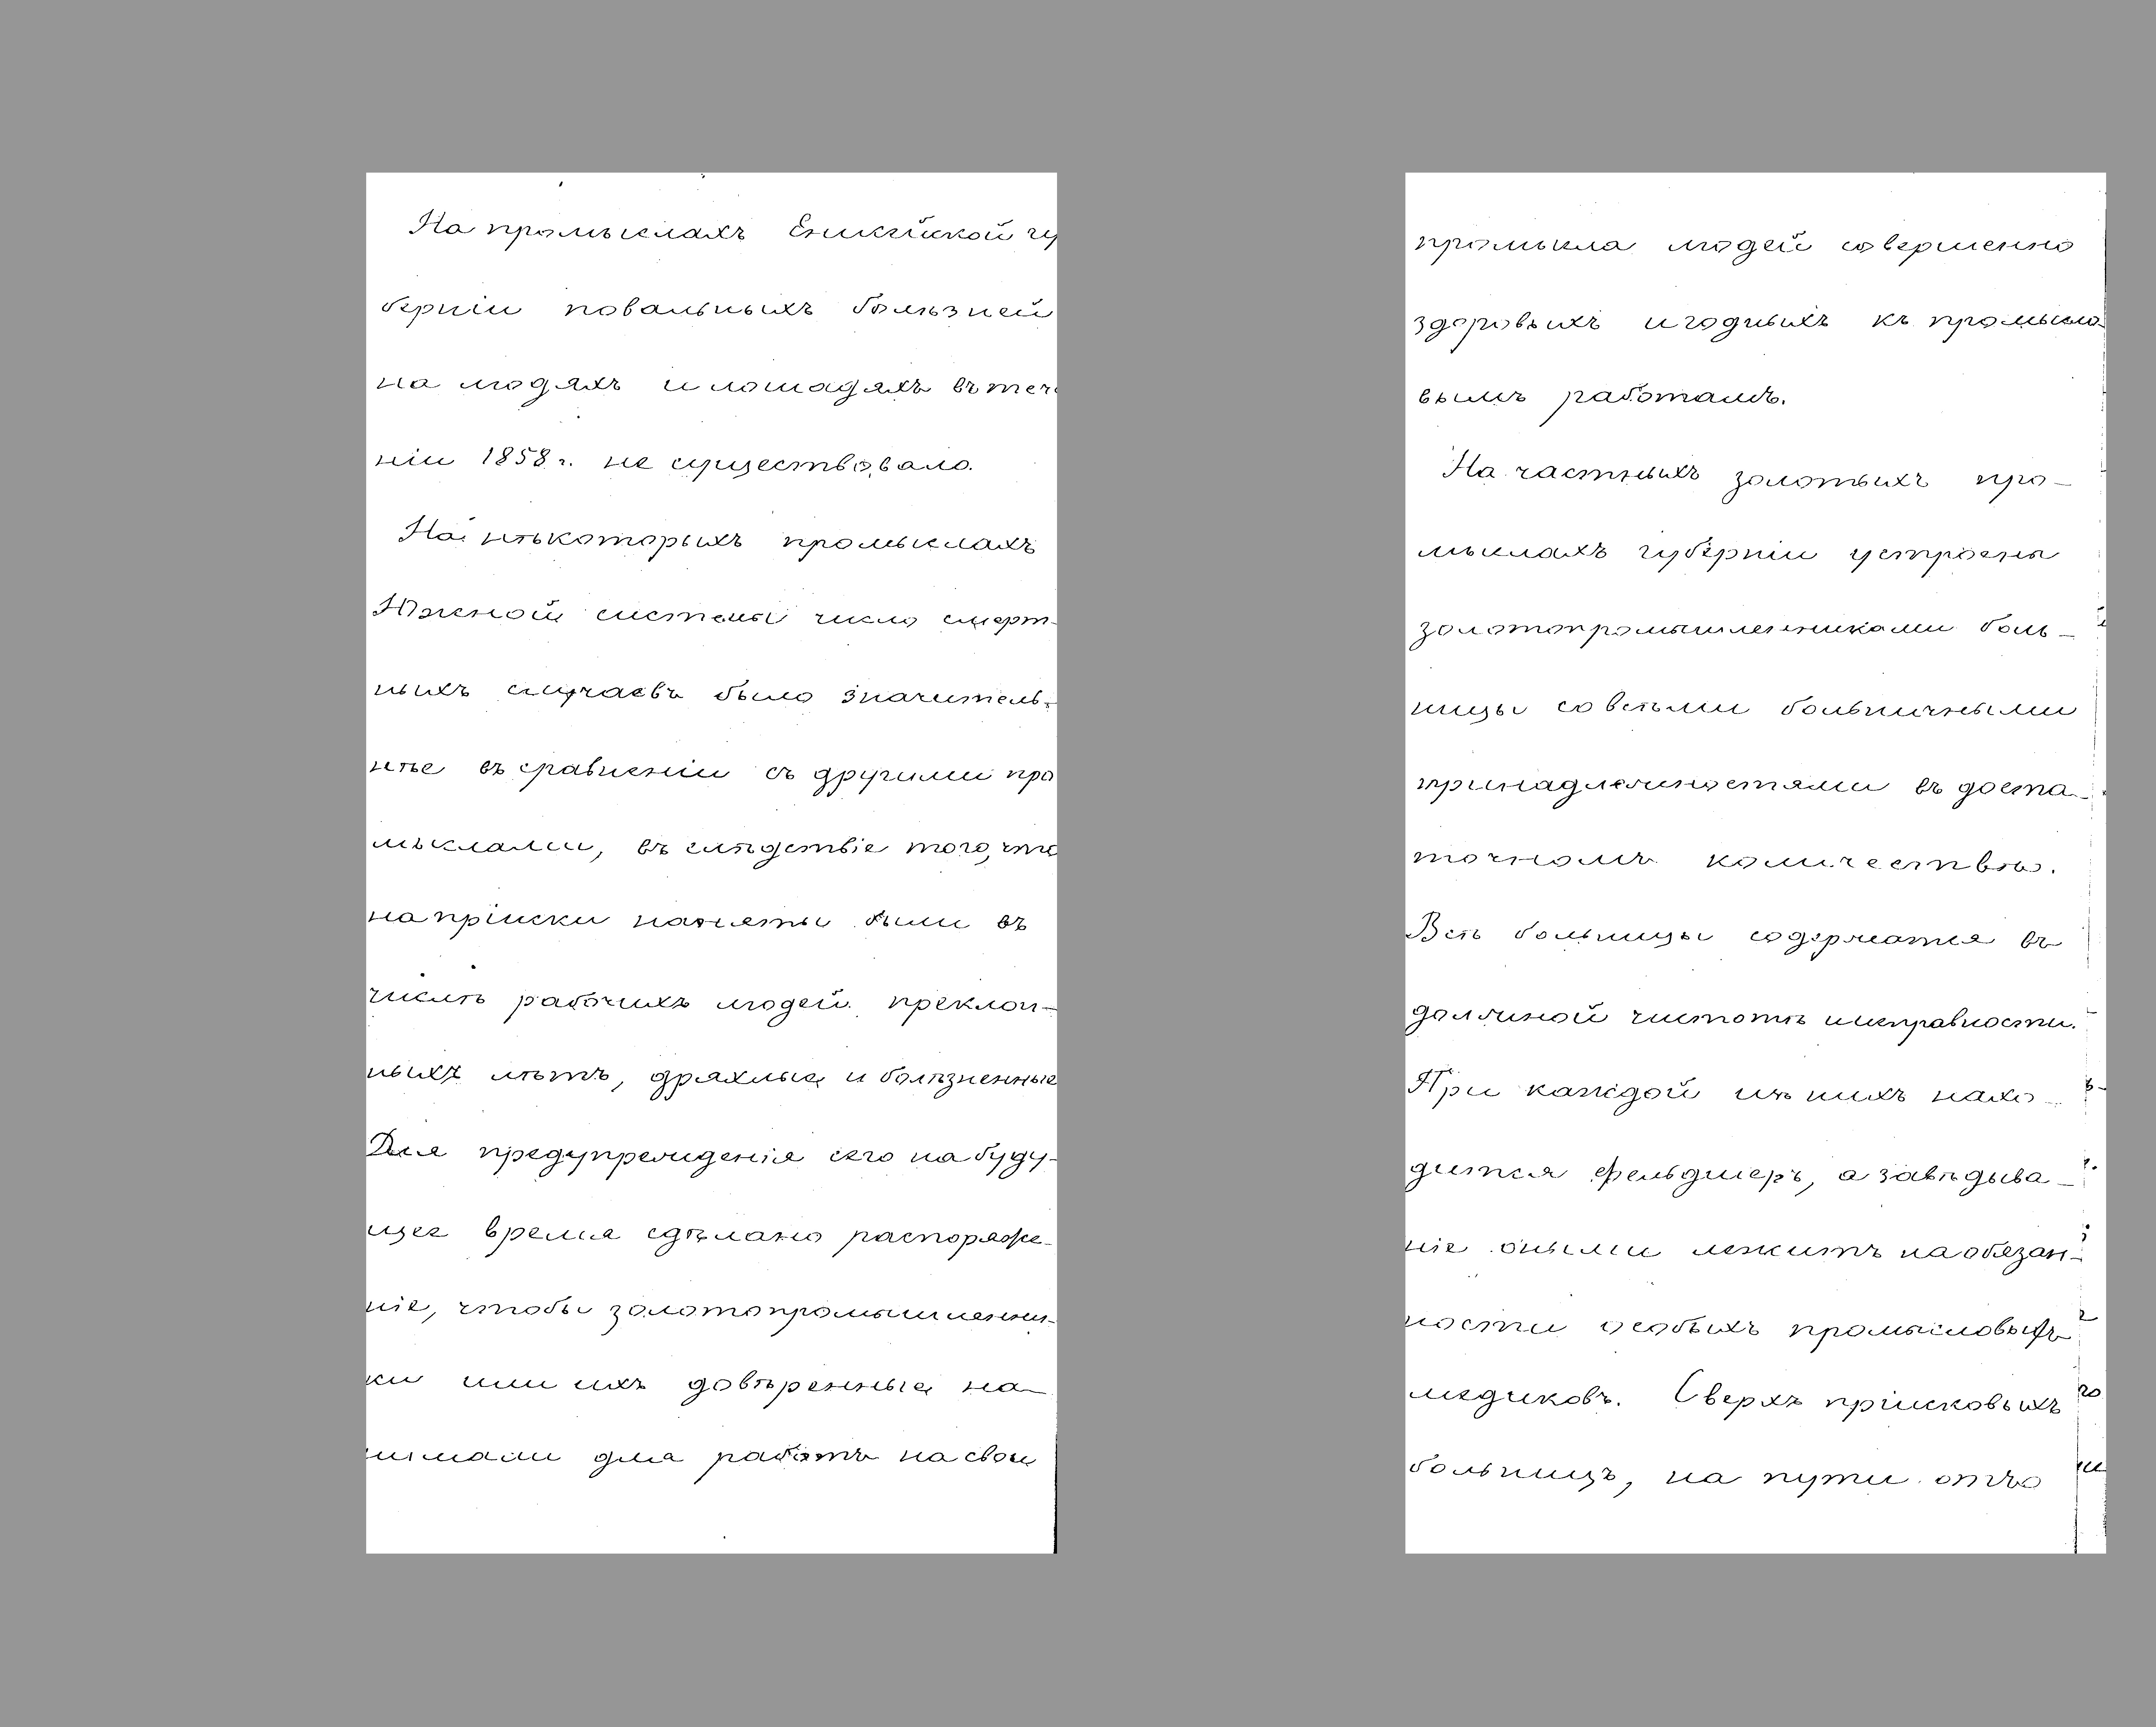 На промыслахъ Енисейской гу
берніи повальныхъ болѣзней
на людяхъ и лошадяхъ въ тече
ніи 1858 г. не существовало.
На нѣкоторыхъ промыслахъ
Южной системы число смерт-
ныхъ случаевъ было значитель-
нѣе въ сравненіи съ другими про
мыслами, въ слѣдствіе того, что
на пріиски наняты были въ
числѣ рабочихъ людей преклон-
ныхъ лѣтъ, дряхлые и болѣзненные
Для предупрежденія сего на буду-
щее время сдѣлано распоряже-
ніе, чтобы золотопромышленни-
ки или ихъ довѣренные на-
нимали для работъ на свои
промысла людей совершенно
здоровыхъ и годныхъ къ промысло-
вымъ работамъ.
На частныхъ золотыхъ про-
мыслахъ губерніи устроены
золотопромышленниками боль-
ницы со всѣми больничными
принадлежностями въ доста-
точномъ количествѣ.
Всѣ больницы содержатся въ
должной чистотѣ и исправности.
При каждой изъ нихъ нахо-
дится фельдшеръ, а завѣдыва-
ніе оными лежитъ на обязан-
ности особыхъ промысловыхъ
медиковъ. Сверхъ пріисковыхъ
больницъ, на пути отъ